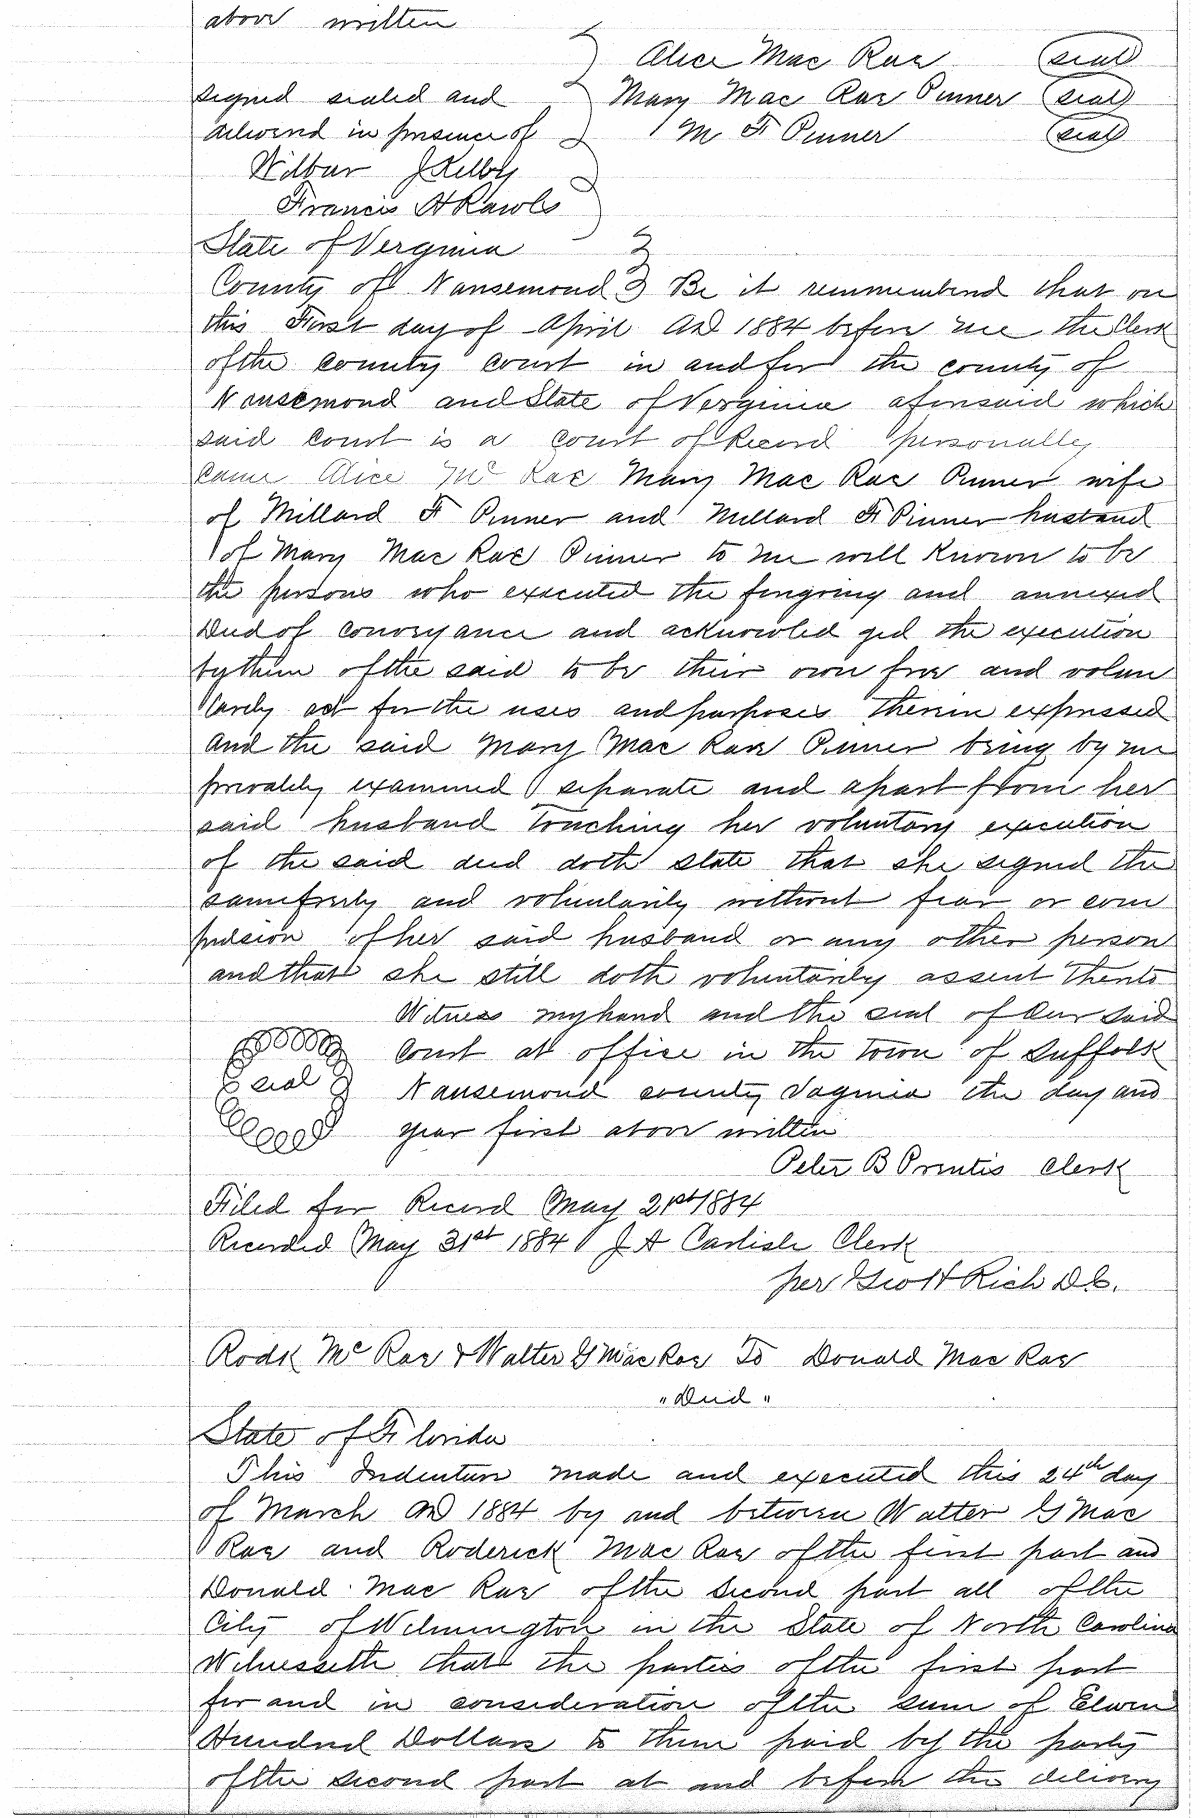 above written
Alice Mac Rae (seal)
signed sealed and Mary Mac Rae Pinner (seal)
delivered in presence of M F Pinner (seal)
Wilbur J Kilby
Francis H Rawls
State of Verginia
County of Nansemond Be it remmembered that on
this First day of April AD 1884 before me the Clerk
of the county court in and for the county of
Nansemond and State of Verginia aforesaid which
said court is a court of Record personally
came Alice Mc Rae Mary Mac Rae Pinner wife
of Millard F Pinner and Millard F Pinner husband
of Mary Mac Rae Pinner to me well known to be
the persons who executed the foregoing and annexed
Deed of conveyance and acknowled ged the execution
by them of the said to be their own free and volun
tarely act for the uses and purposes therein expressed
and the said Mary Mac Rae Pinner being by me
privately examined separate and apart from her
said husband Touching her voluntary execution
of the said deed doth state that she signed the
same freely and voluntarily without fear or com
pulsion of her said husband or any other person
and that she still doth voluntarily assent thereto
Witness my hand and the seal of our said
court at office in the town of Suffolk
seal
Nansemond county Virginia the day and
year first above written
Peter B Prentis Clerk
Filed for Record May 21st 1884
Recorded May 31st 1884 J A Carlisle Clerk
per Geo H Rich D.C.
Rodk Mc Rae & Walter G Mac Rae To Donald Mac Rae
"Deed"
State of Florida
This Indenture made and executed this 24th day
of March AD 1884 by and between Walter G Mac
Rae and Roderick Mac Rae of the first part and
Donald Mac Rae of the second part all of the
City of Wilmington in the State of North Carolina
Witnesseth that the parties of the first part
for and in consideration of the sum of Eleven
Hundred Dollars to them paid by the party
of the second part at and before the delivery